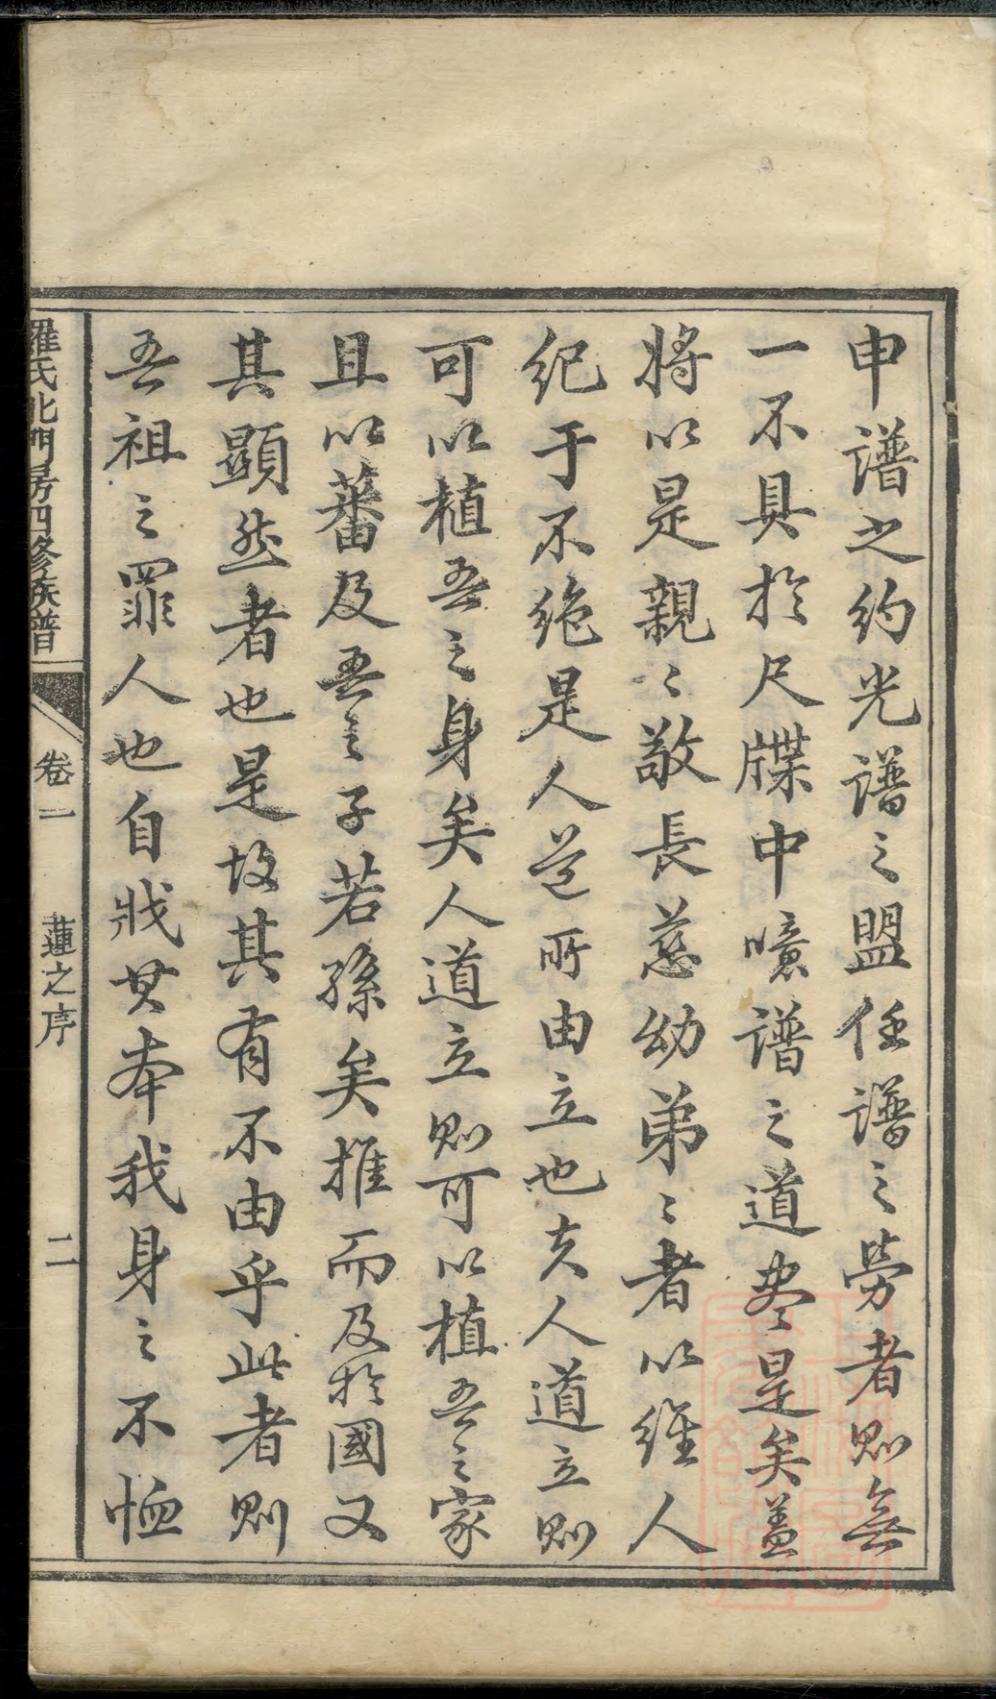 申譜之約光譜之盟任譜之勞者則無
一不具於尺牒中噫譜之道盡是矣蓋
將以是親〻敬長慈幼弟〻者以維人
紀于不絶是人道所由立也夫人道立則
可以植吾之身矣人道立則可以植吾之家
且以蕃及吾之子若孫矣推而及於國又
其顯然者也是故其有不由乎此者則
吾祖之罪人也自戕其本我身之不恤
羅氏北門房四修族譜
卷一
蓮之序
二